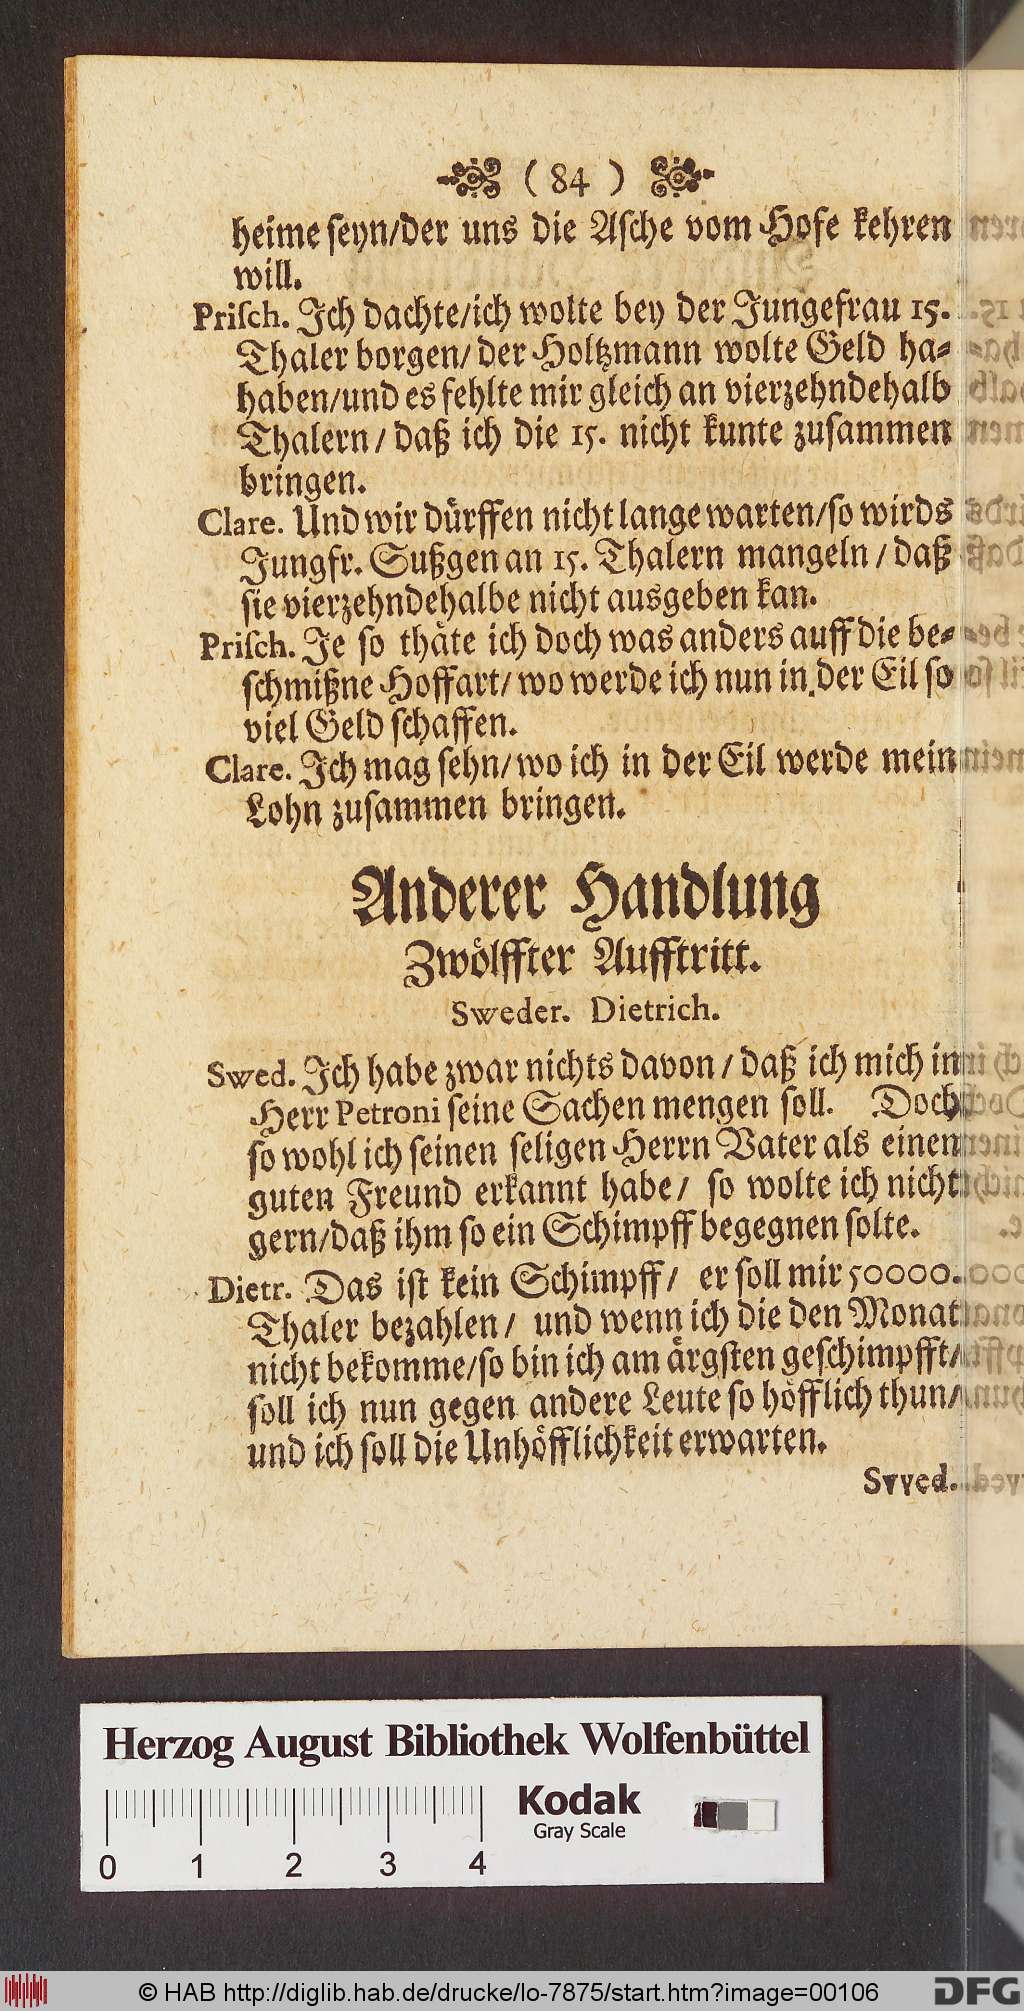 ( 84 )
heime seyn/der uns die Asche vom Hofe kehren
will.
Prisch. Ich dachte/ich wolte bey der Jungefrau 15.
Thaler borgen/ der Holtzmann wolte Geld ha-
haben/und es fehlte mir gleich an vierzehndehalb
Thalern/ daß ich die 15. nicht kunte zusammen
bringen.
Clare. Und wir dürffen nicht lange warten/so wirds
Jungfr. Sußgen an 15. Thalern mangeln/ daß
sie vierzehndehalbe nicht ausgeben kan.
Prisch. Je so thäte ich doch was anders auff die be-
schmißne Hoffart/ wo werde ich nun in der Eil so
viel Geld schaffen.
Clare. Ich mag sehn/ wo ich in der Eil werde mein
Lohn zusammen bringen.
Anderer Handlung
Zwölffter Aufftritt.
Sweder. Dietrich.
Swed. Ich habe zwar nichts davon/ daß ich mich in
Herr Petroni seine Sachen mengen soll. Doch
so wohl ich seinen seligen Herrn Vater als einen
guten Freund erkannt habe/ so wolte ich nicht
gern/daß ihm so ein Schimpff begegnen solte.
Dietr. Das ist kein Schimpff/ er soll mir 50000.
Thaler bezahlen/ und wenn ich die den Monat
nicht bekomme/so bin ich am ärgsten geschimpfft/
soll ich nun gegen andere Leute so höfflich thun/
und ich soll die Unhöfflichkeit erwarten.
Svved.
Herzog August Bibliothek Wolfenbüttel
Kodak
Gray Scale
0 1 2 3 4
© HAB http://diglib.hab.de/drucke/lo-7875/start.htm?image=00106
DFG